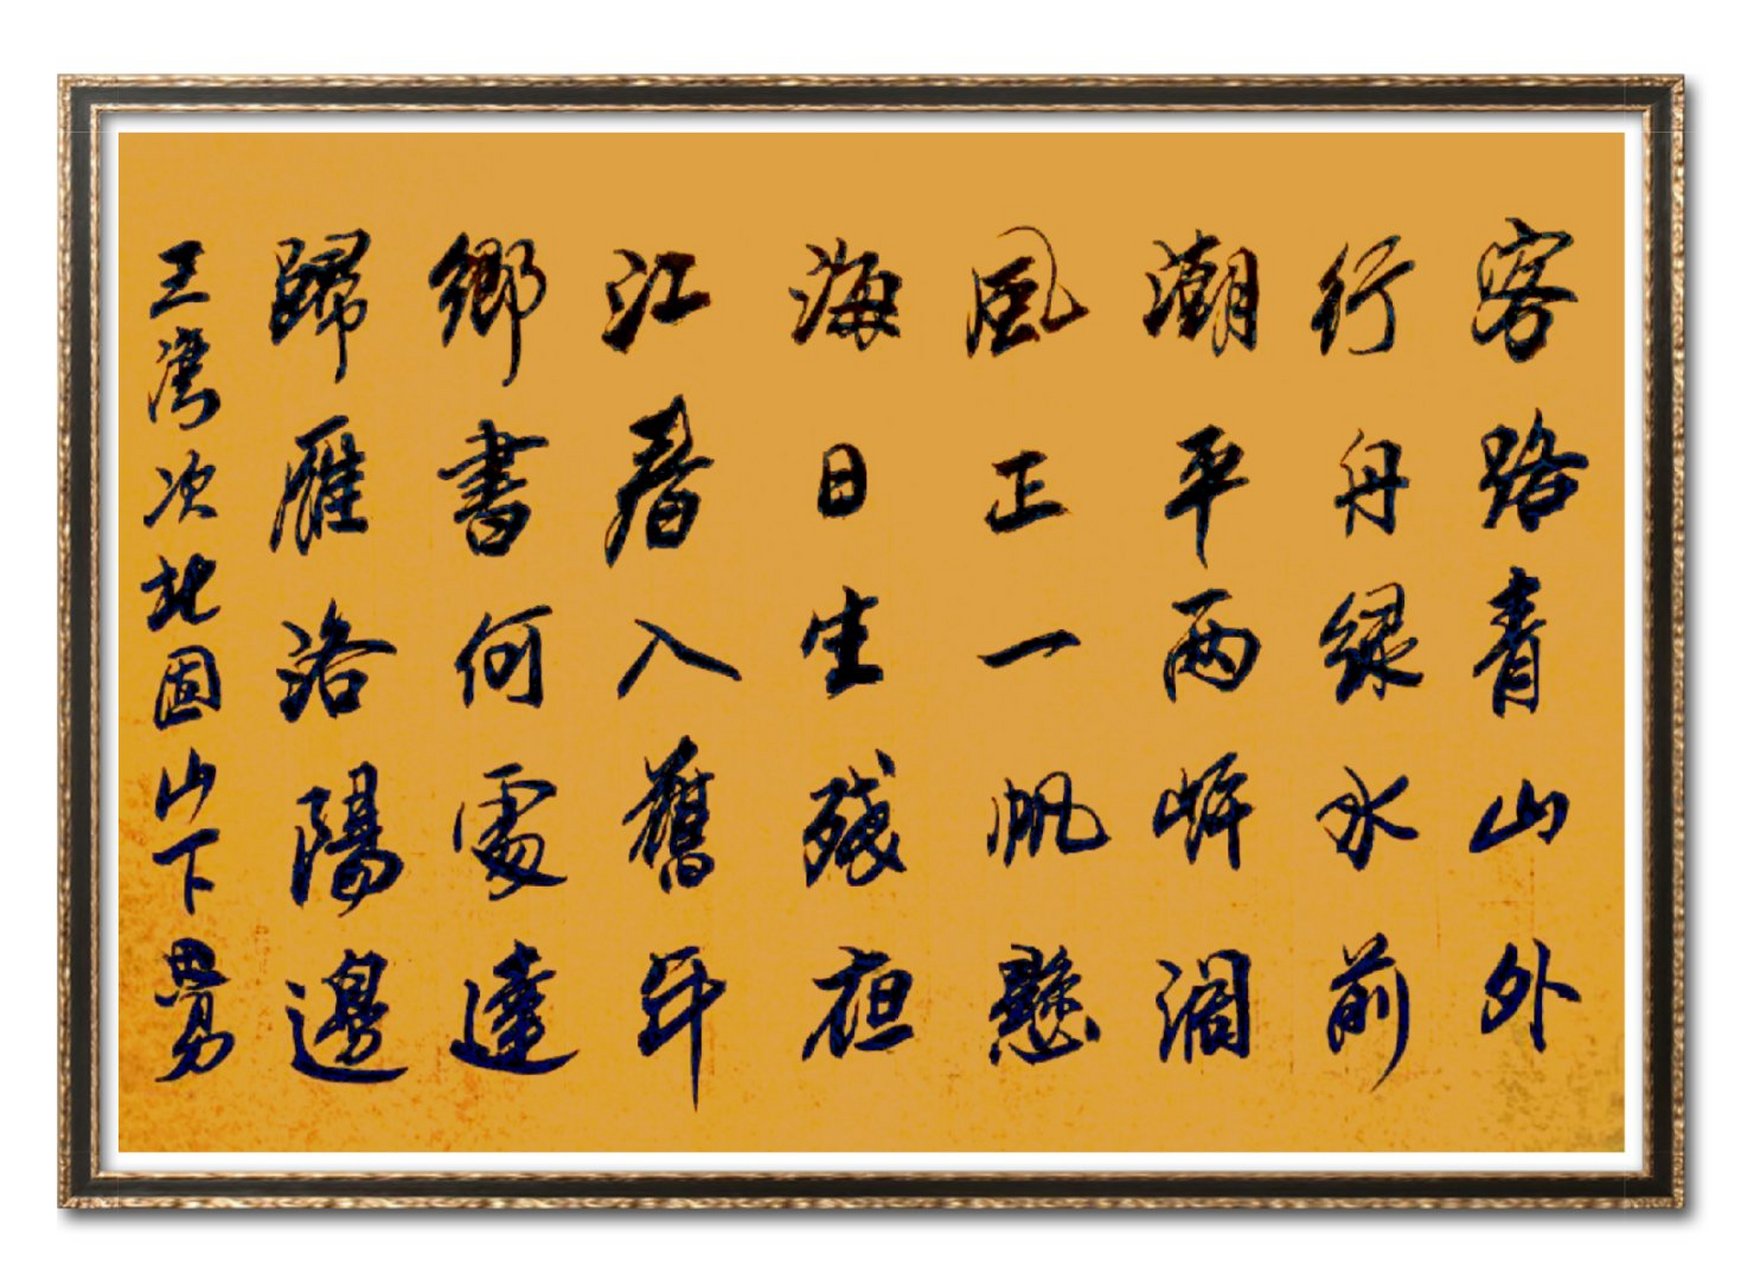 客路青山外
行舟綠水前
潮平兩岸濶
風正一帆懸
海日生殘夜
江春入舊年
鄉書何處達
歸雁洛陽邊
王灣次北固山下